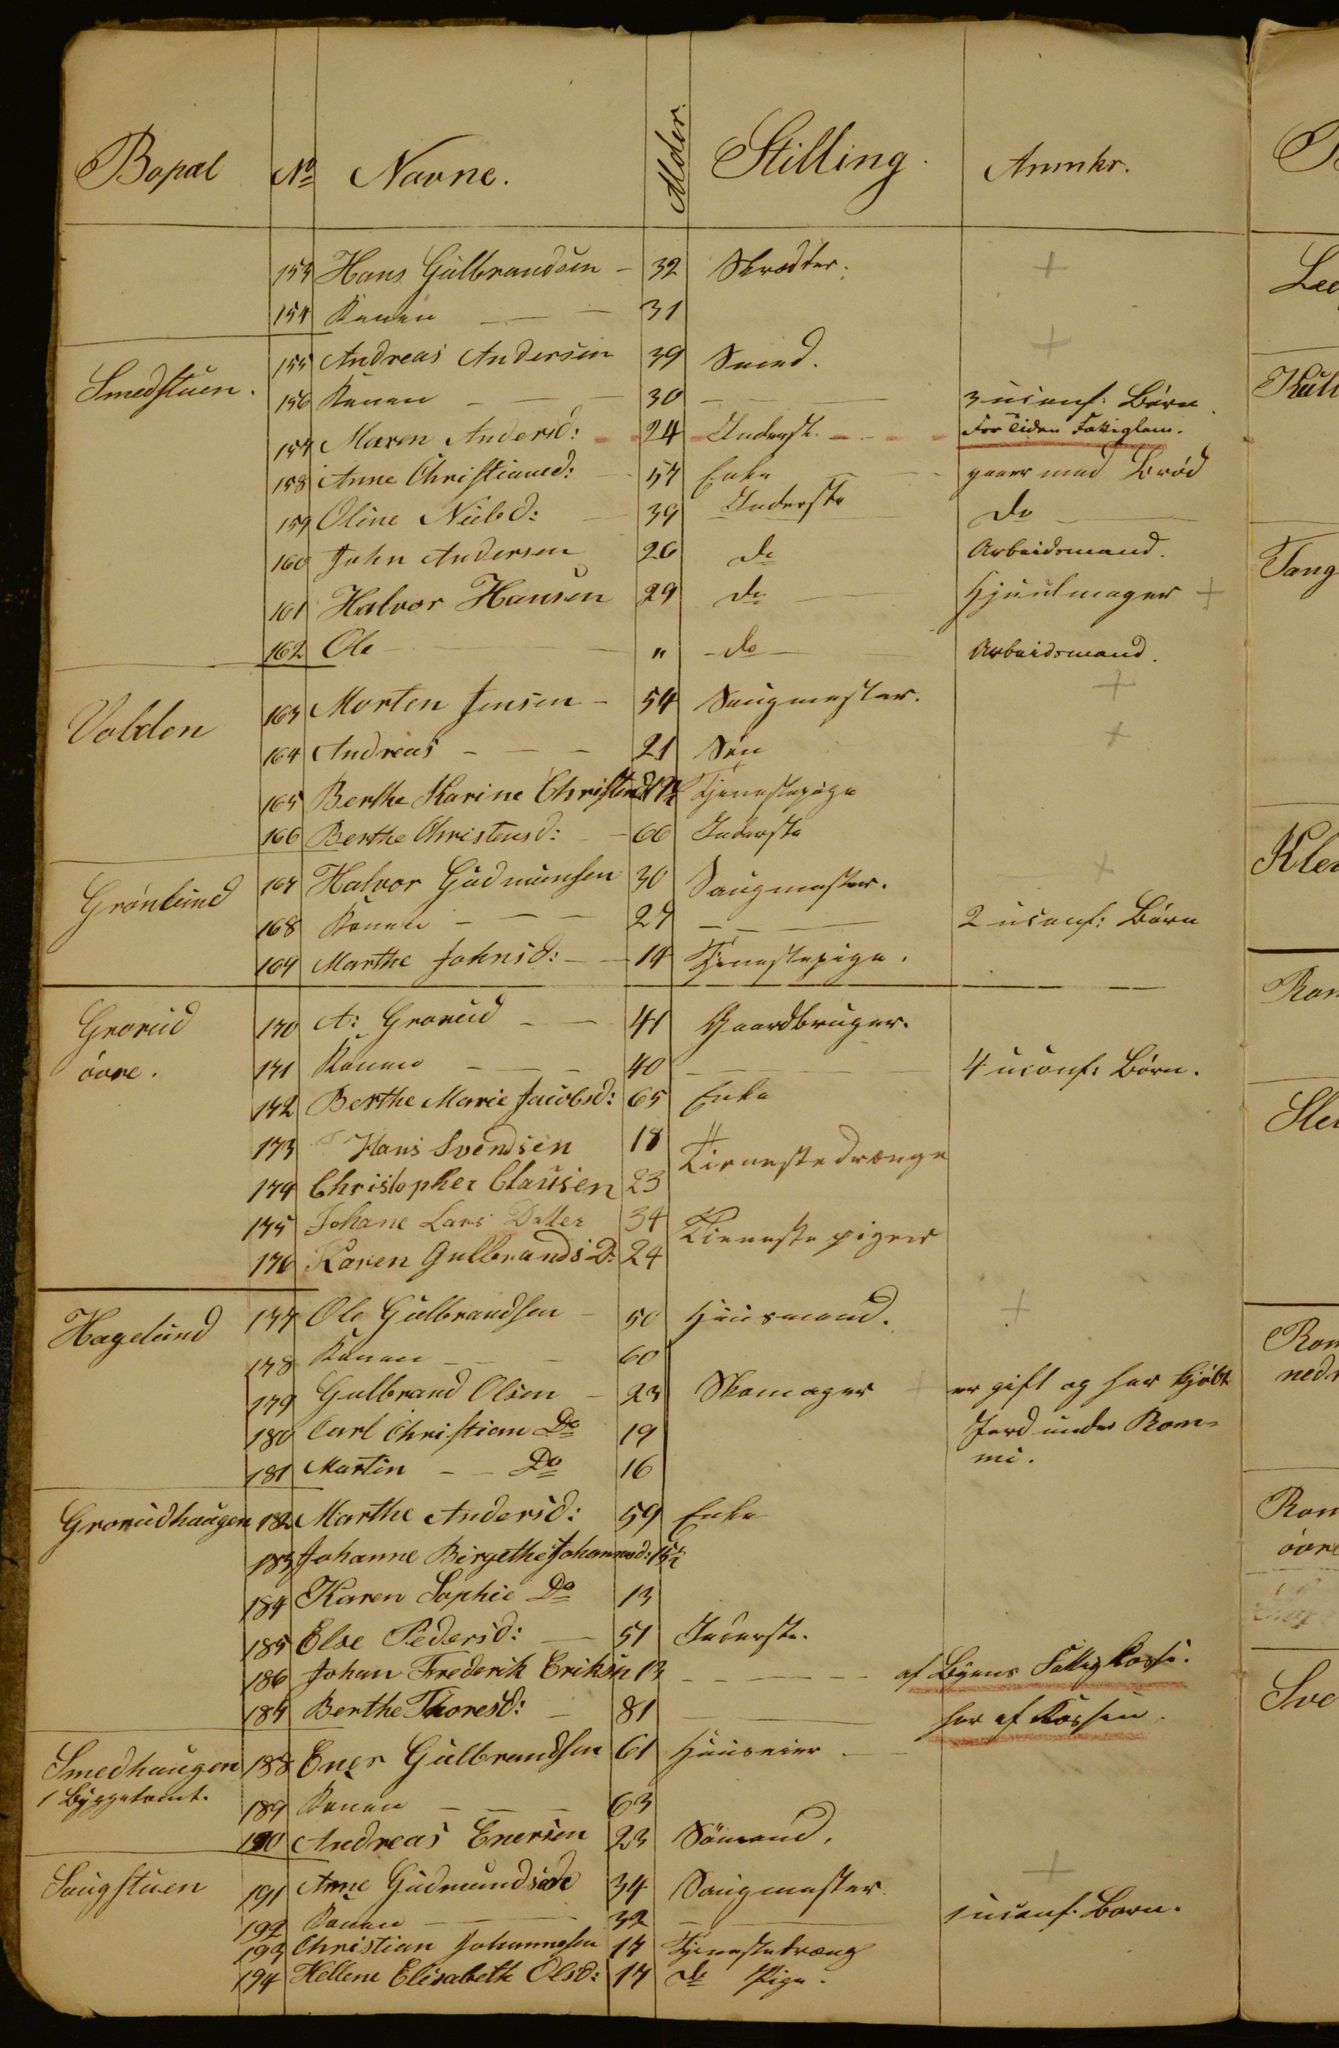 Bopæl No Navne. Alder. Stilling. Anmkr.
153 Hans Gulbrandsen - 32 Skrædder. +
154 Konen - - - 31
Smedstuen. 155 Andreas Andersen 39 Smed. +
156 Konen - - - 30 - - - 3 uconf: Børn
157 Maren Andersd: - 24 Inderst. - - For Tiden Fattiglem.
158 Anne Christiansd: - 57 Enke - gaaer med Brød
159 Oline Nielsd: - 39 Inderste Do
160 John Andersen 26 do Arbeidsmand.
161 Halvor Hansen 29 do Hjuulmager +
162 Ole - " - do - Arbeidsmand.
Volden 163 Morten Jensen - 54 Saugmester. +
164 Andreas - - - 21 Søn +
165 Berthe Karine Christensd: Tjenestepige
166 Berthe Christensd: - 66 Inderste
Grønlund 167 Halvor Gudmunsen 30 Saugmester. +
168 Konen - - - 27 - - - 2 uconf: Børn
169 Marthe Johnsd: - - 14 Tjenestepige.
Grorud 170 A: Grorud - - 41 Gaardbruger.
øvre. 171 Konen - - - 40 - - - 4 uconf: Børn.
172 Berthe Marie Jacobsd: 65 Enke
173 Hans Svendsen 18 Tienestedrænge
174 Christopher Clausen 23
175 Johane Lars Datter 34 Tienestepiger
176 Karen Gulbrands D: 24
Hagelund 177 Ole Gulbrandsen - 50 Huusmand. +
178 Konen - - - 60
179 Gulbrand Olsen - 23 Skomager + er gift og har kjøbt
180 Carl Christian Do 19 Jord under Rom-
181 Martin - - Do 16 mi.
Grorudhaugen 182 Marthe Andersd: 59 Enke
183 Johanne Birgethe Johannesd: 15½
184 Karen Sophie Do 13
185 Else Pedersd: - 51 Inderste.
186 Johan Frederik Eriksen 13 - - - af Byens Fattigkasse.
187 Berthe Thoresd: - 81 - har af Kassen.
Smedhaugen 188 Ener Gulbrandsen 61 Huuseier -
1 Byggetomt. 189 Konen - - - 63
190 Andreas Enersen 23 Sømand.
Saugstuen 191 Arne Gudmundsen 34 Saugmester. +
192 Konen - - 32 - 1 uconf. Barn.
193 Christian Johannesen 17 Tjenestedreng
194 Hellene Elisabeth Olsd: 17 do Pige.